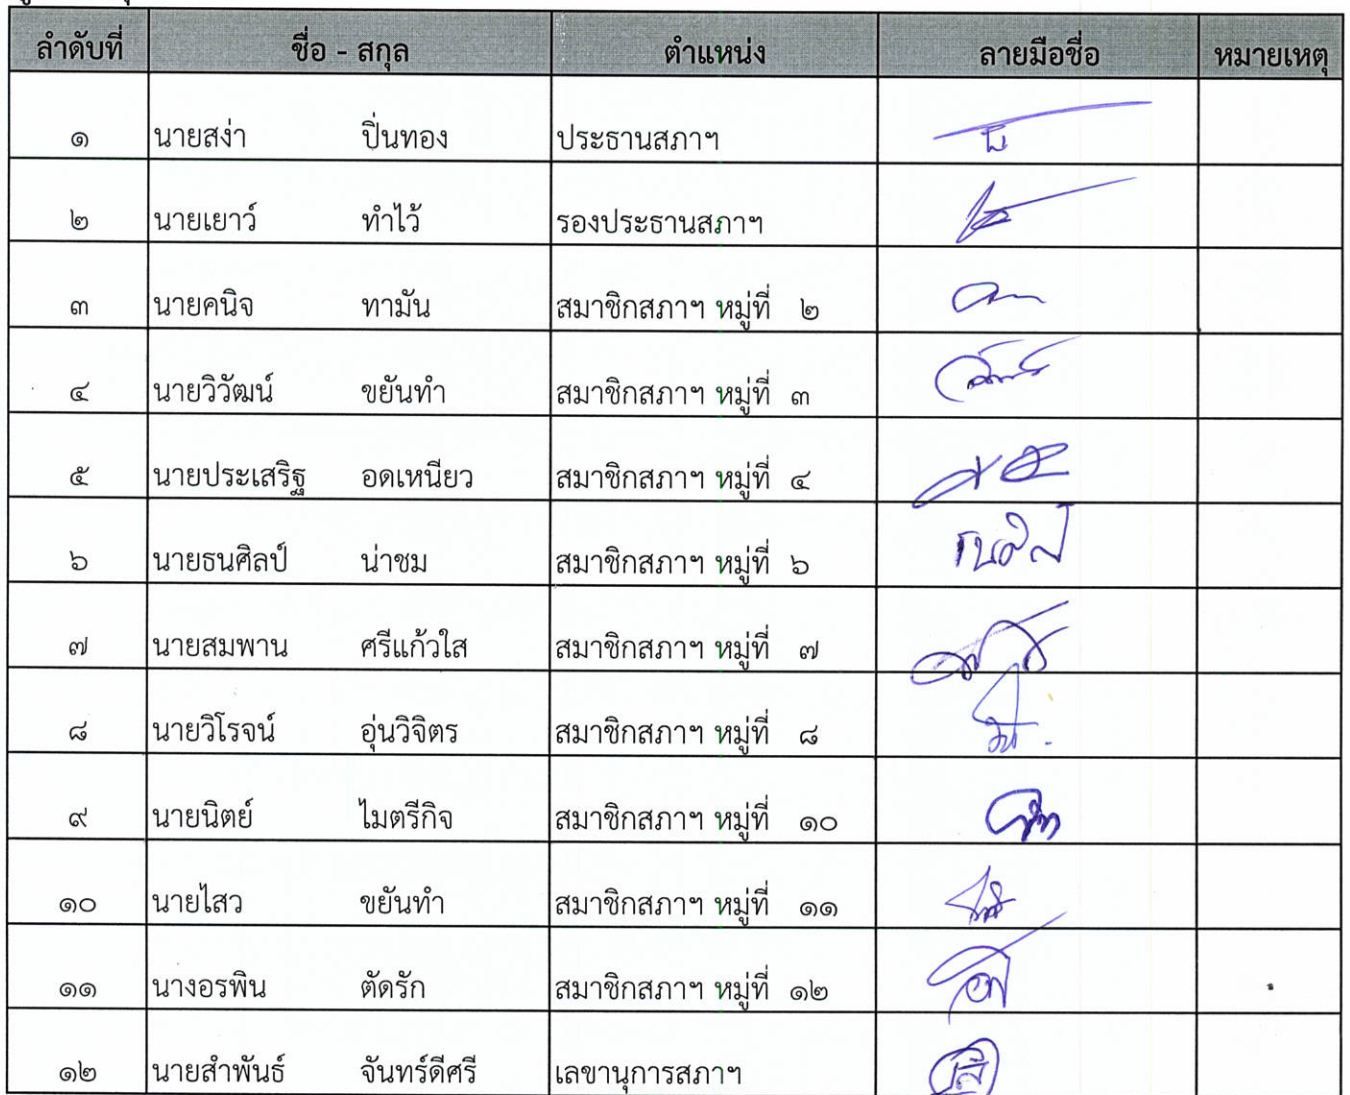 ลำดับที่ ชื่อ - สกุล ตำแหน่ง ลายมือชื่อ หมายเหตุ
๑ นายสง่า ปิ่นทอง ประธานสภาฯ
๒ นายเยาว์ ทำไว้ รองประธานสภาฯ
๓ นายคนิจ ทามัน สมาชิกสภาฯ หมู่ที่ ๒
๔ นายวิวัฒน์ ขยันทำ สมาชิกสภาฯ หมู่ที่ ๓
๕ นายประเสริฐ อดเหนียว สมาชิกสภาฯ หมู่ที่ ๔
๖ นายธนศิลป์ น่าชม สมาชิกสภาฯ หมู่ที่ ๖
๗ นายสมพาน ศรีแก้วใส สมาชิกสภาฯ หมู่ที่ ๗
๘ นายวิโรจน์ อุ่นวิจิตร สมาชิกสภาฯ หมู่ที่ ๘
๙ นายนิตย์ ไมตรีกิจ สมาชิกสภาฯ หมู่ที่ ๑๐
๑๐ นายไสว ขยันทำ สมาชิกสภาฯ หมู่ที่ ๑๑
๑๑ นางอรพิน ตัดรัก สมาชิกสภาฯ หมู่ที่ ๑๒
๑๒ นายสำพันธ์ จันทร์ดีศรี เลขานุการสภาฯ